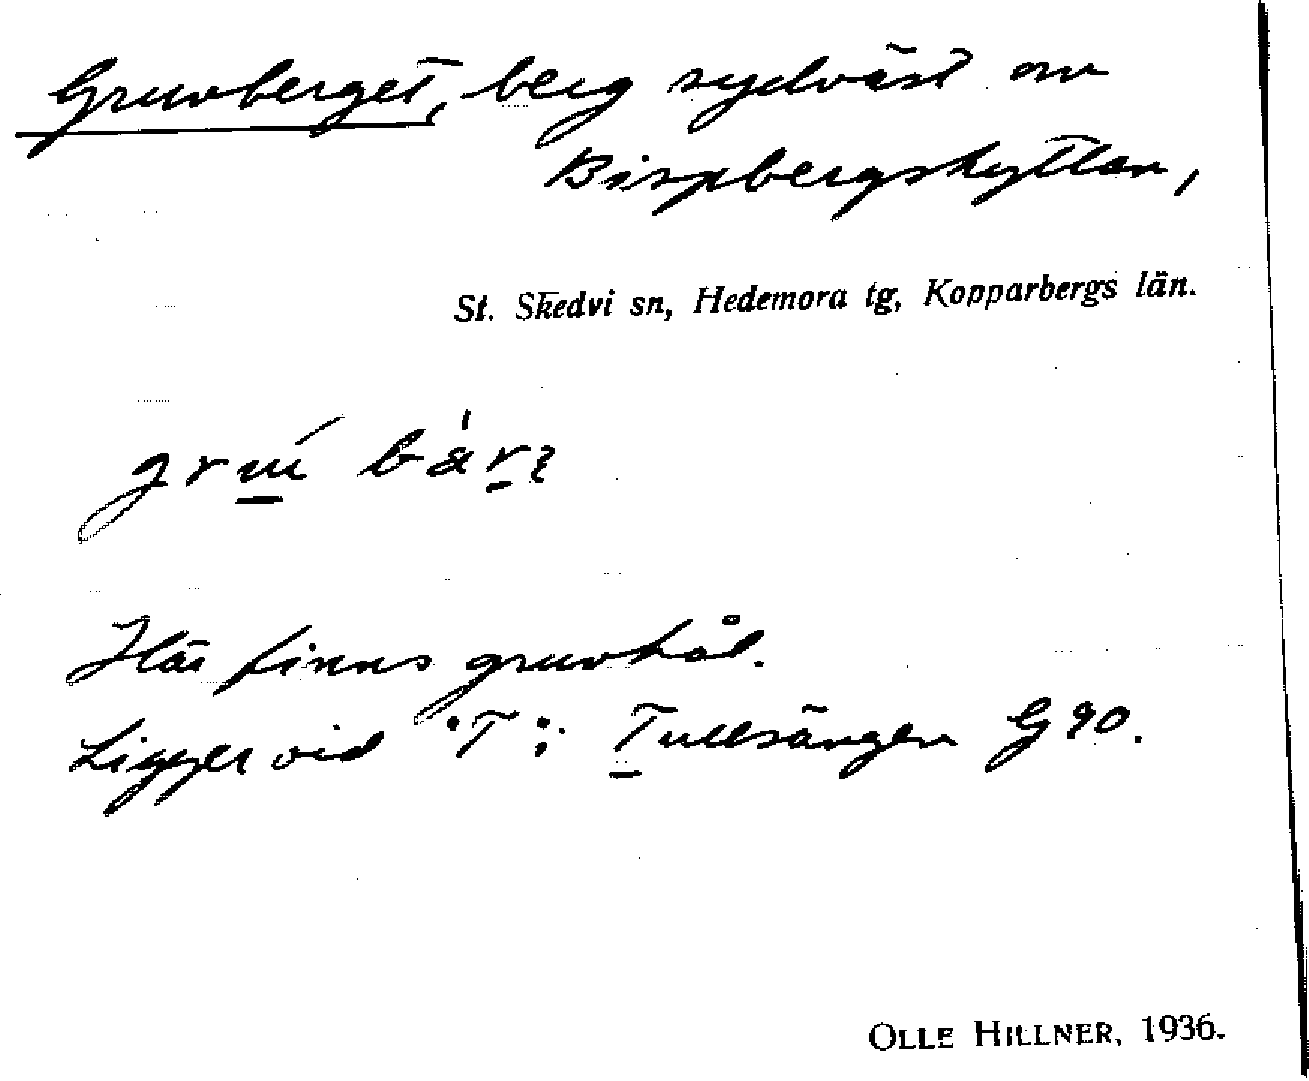 Gruvberget, berg sydväst om
Bispbergshyttan,
St. Skedvi sn, Hedemora tg, Kopparbergs län.
Här finns gruvhål.
Ligger vid "T": Tullsängen G 90.
OLLE HILLNER, 1936.